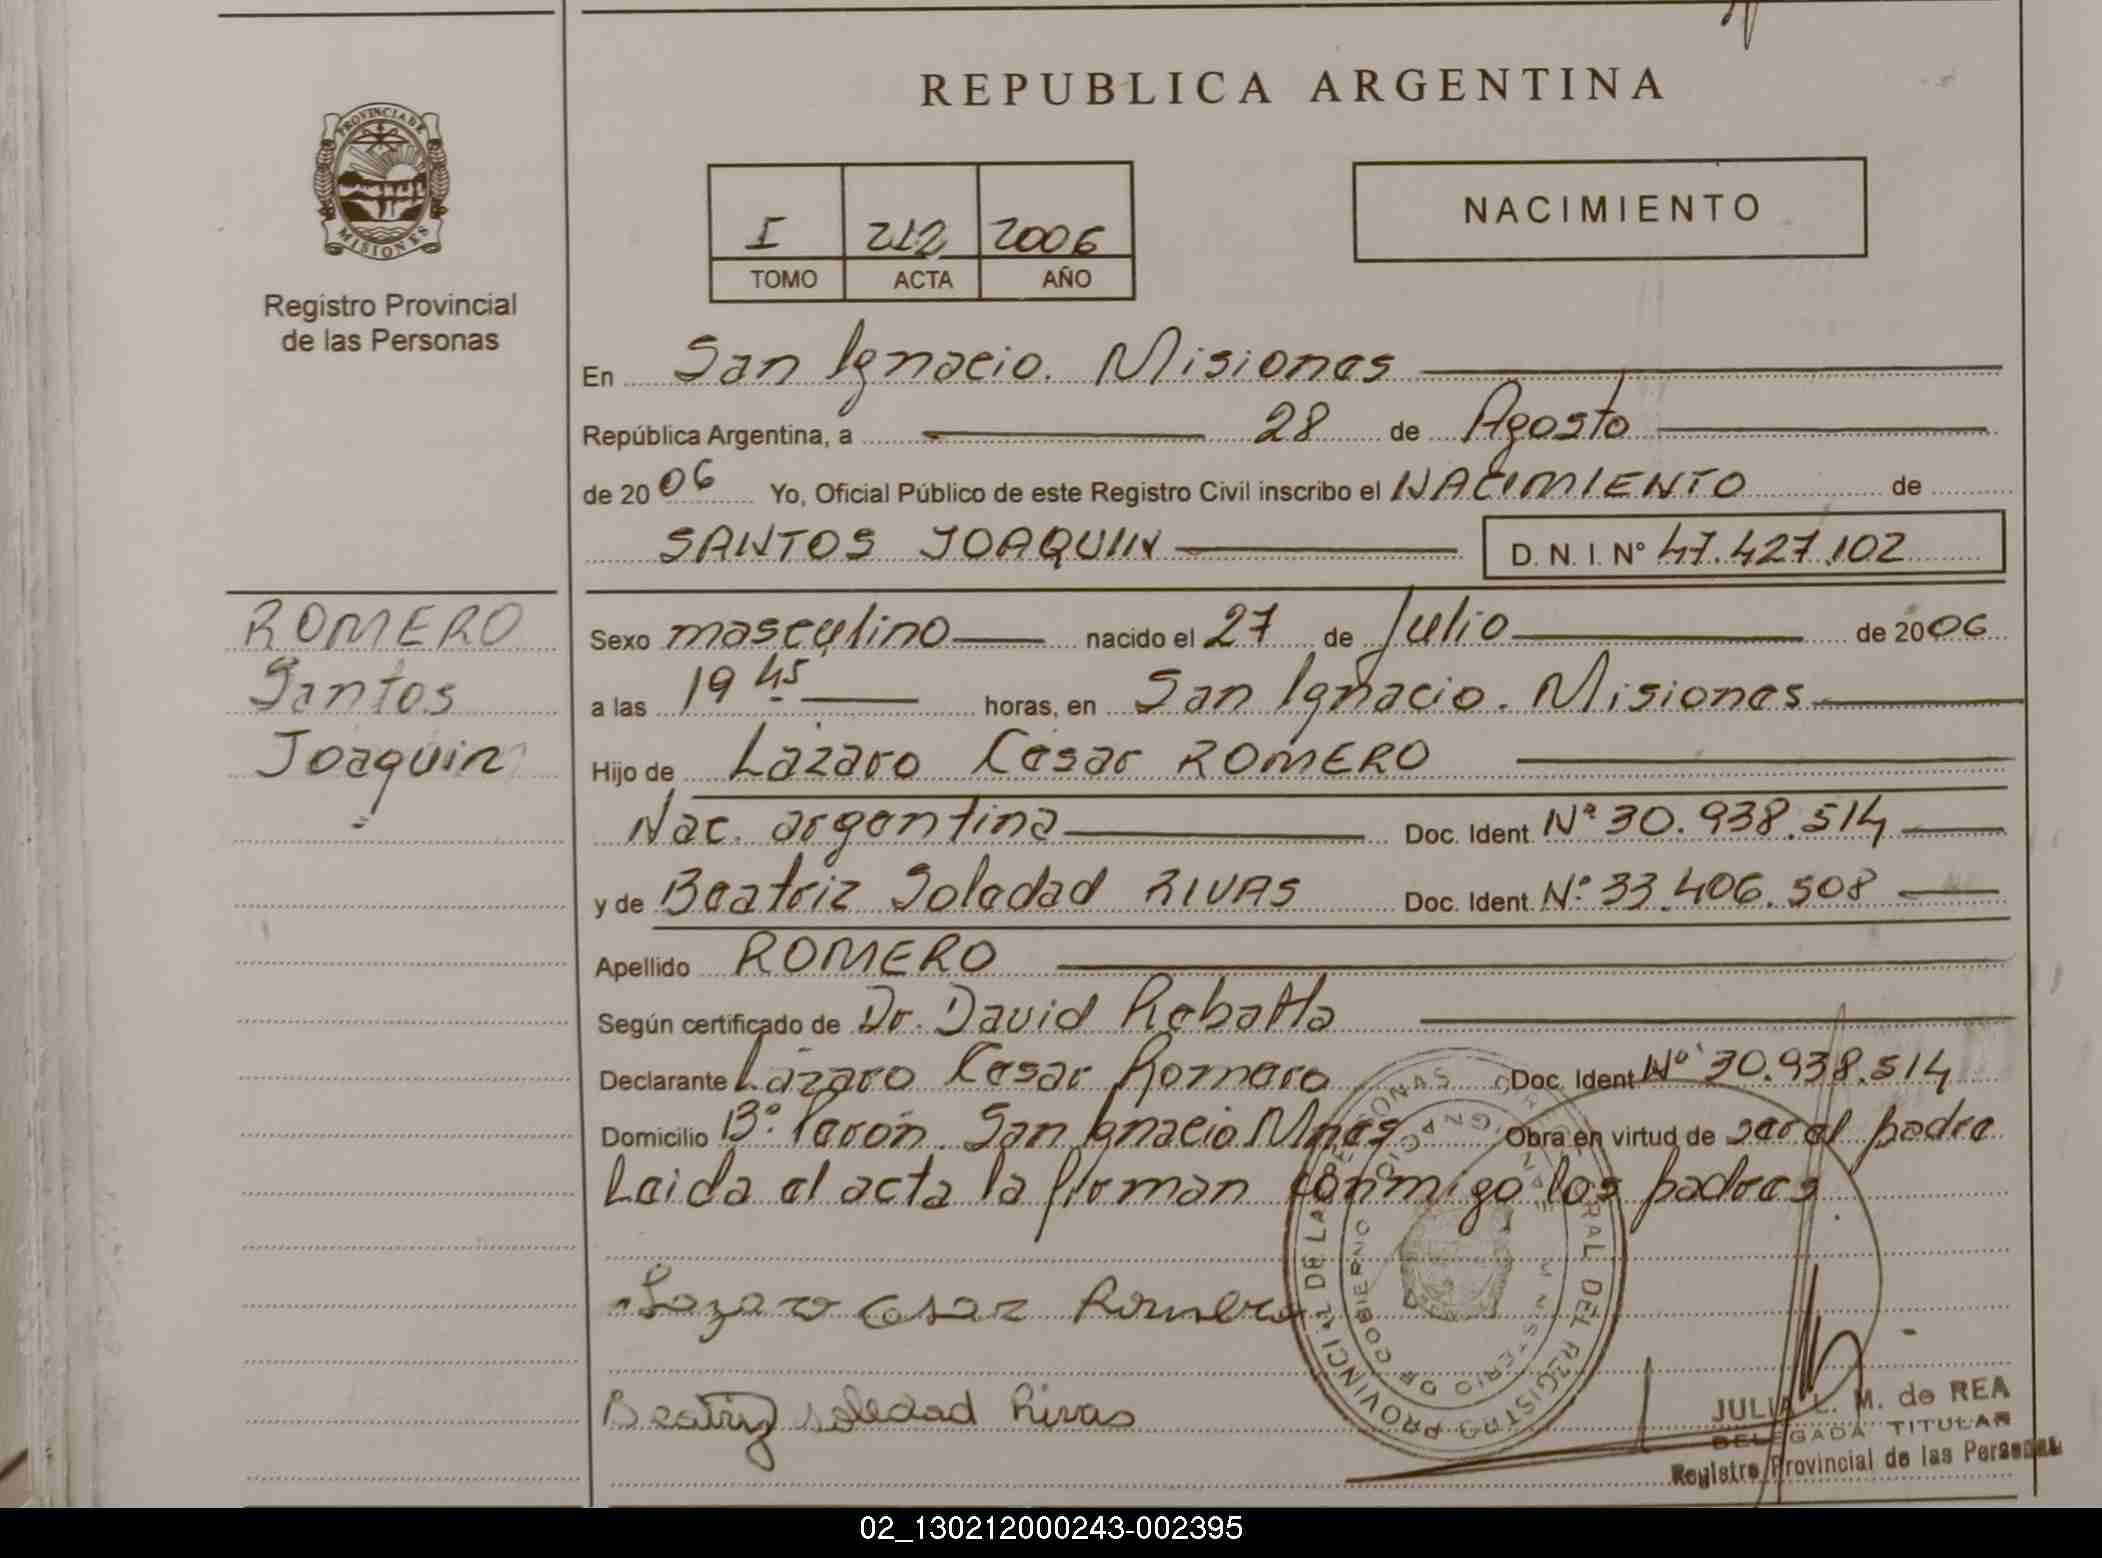 REPUBLICA ARGENTINA
PROVINCIA DE
MISIONES
Registro Provincial
de las Personas
I 212 2006
TOMO ACTA AÑO
NACIMIENTO
En San Ignacio. Misiones
República Argentina, a 28 de Agosto
de 2006 Yo, Oficial Público de este Registro Civil inscribo el NACIMIENTO de
SANTOS JOAQUIN D. N. I. N° 47.427.102
ROMERO
Santos
Joaquin
Sexo masculino nacido el 27 de Julio de 2006
a las 19 45 horas, en San Ignacio. Misiones
Hijo de Lázaro Cesar ROMERO
Nac. argentina Doc. Ident. Nº 30.938.514
y de Beatriz Soledad RIVAS Doc. Ident. Nº 33.406.508
Apellido ROMERO
Según certificado de Dr. David
Declarante Lázaro Cesar Romero Doc. Ident Nº 30.938.514
Domicilio Bº. Perón. San Ignacio Mnes Obra en virtud de ser el padre
Leida el acta la firman conmigo los padres
Lazaro Cesar Romero
Beatriz Soledad Rivas
JULIA L. M. de REA
DELEGADA TITULAR
Registro Provincial de las Personas
02_130212000243-002395